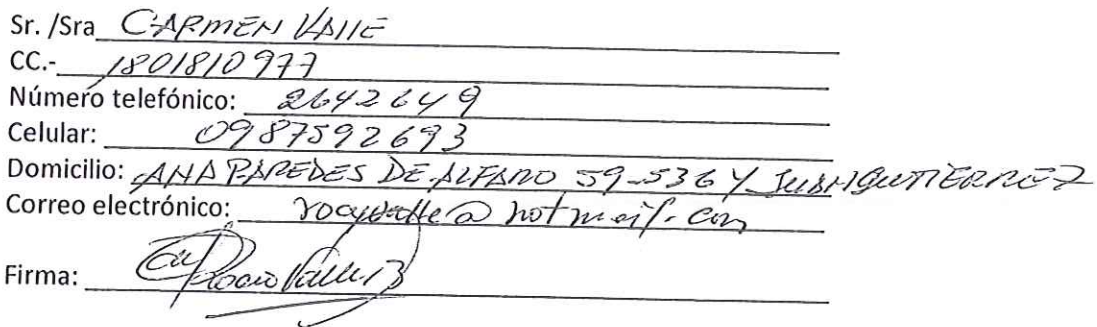 Sr. /Sra CARMEN VALLE
CC.- 1801810977
Número telefónico: 2642649
Celular: 0987592693
Domicilio: ANA PAREDES DE ALFARO 59-536 Y JUAN GUTIERREZ
Correo electrónico: rocyvalle@hotmail.com
Firma: Rocio Valle B